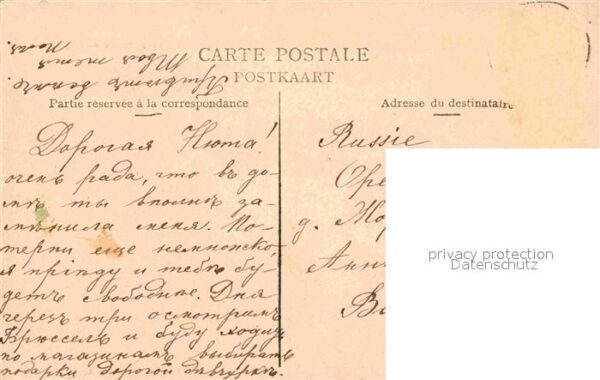 CARTE POSTALE
POSTKAART
Partie réservée à la correspondance
Adresse du destinataire
Дорогая Нюта!
очень рада, что въ до-
мѣ ты вполнѣ за-
мѣнила меня. По-
терпи еще немножко,
я пріѣду и тебѣ бу-
детъ свободнѣе. Дня
черезъ три осмотримъ
Брюссель и буду ходить
по магазинамъ выбирать
подарки дорогой дѣвчуркѣ.
твоя тетя
Поля.
Russie
Оре
д. Мо
Анн
privacy protection
Datenschutz